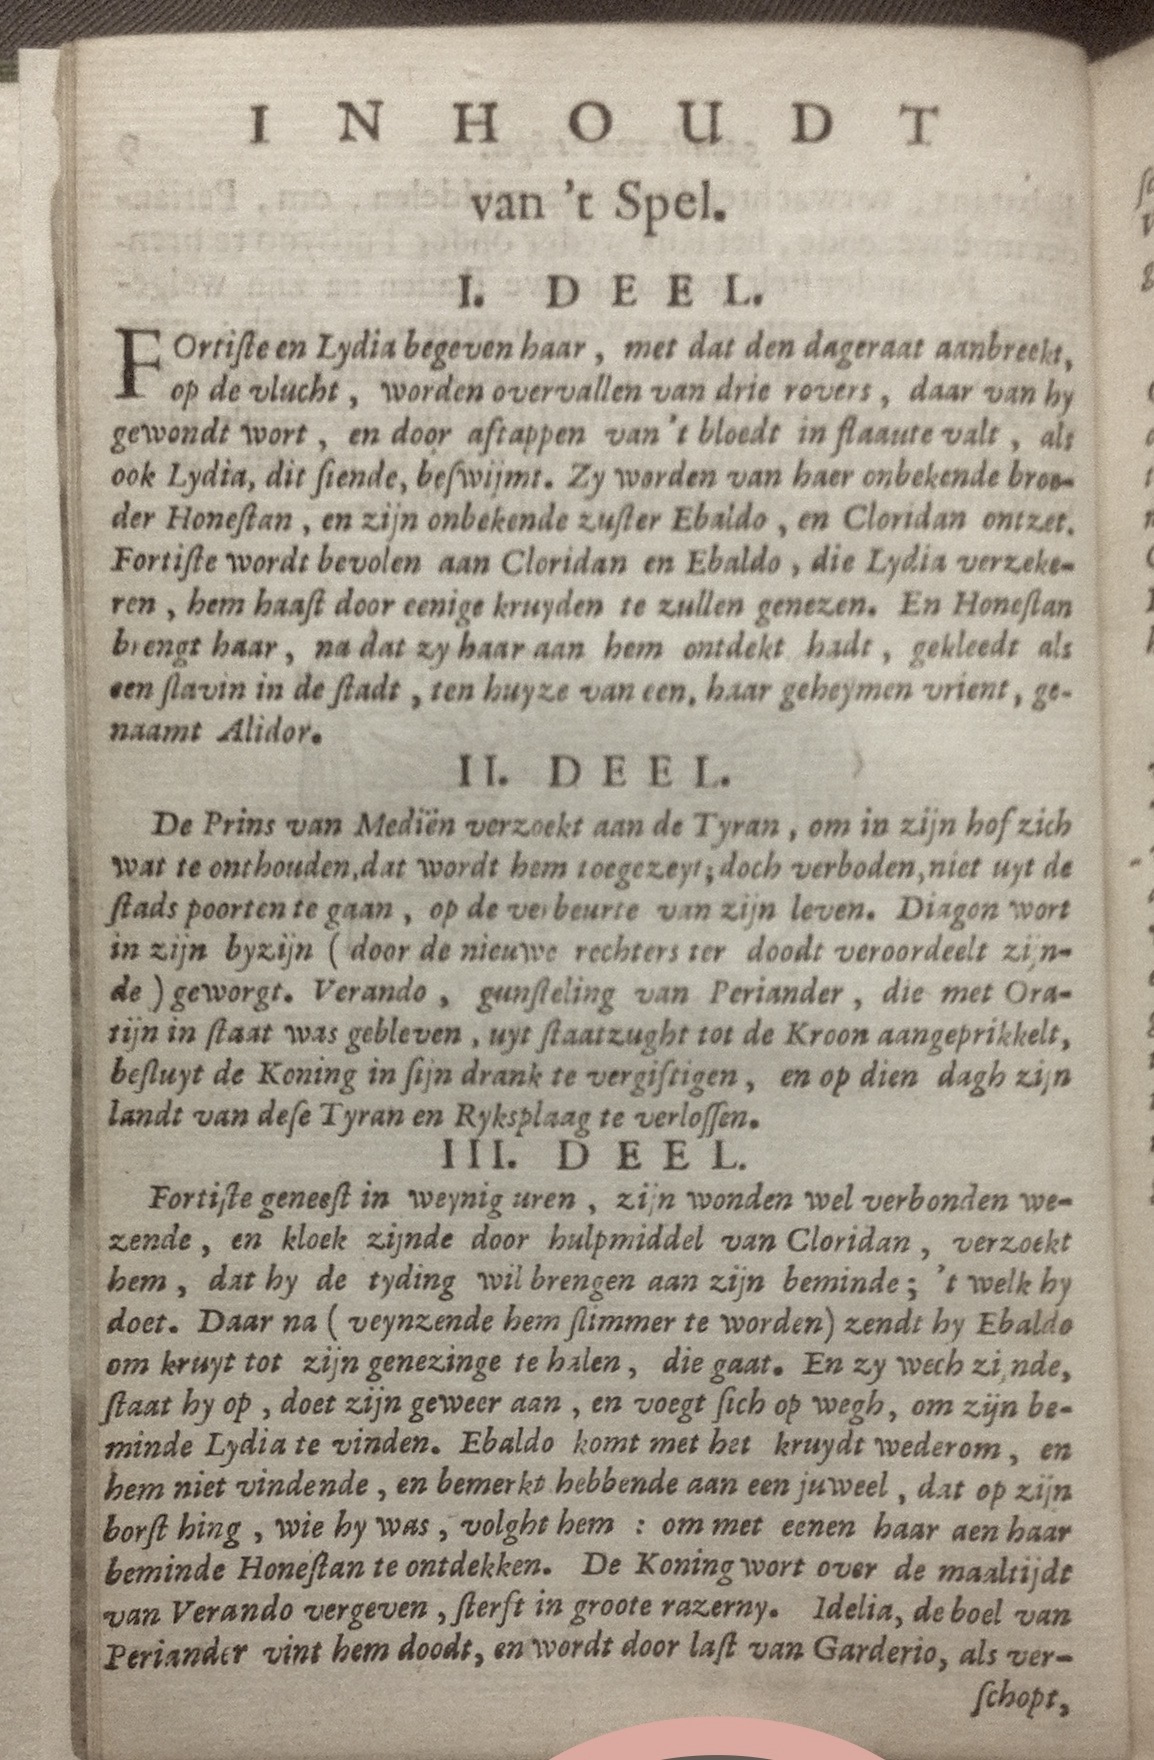 INHOUDT
van 't Spel.
I. DEEL.
FOrtiſte en Lydia begeven haar, met dat den dageraat aanbreekt,
op de vlucht, worden overvallen van drie rovers, daar van hy
gewondt wort, en door aftappen van 't bloedt in flaaute valt, als
ook Lydia, dit ſiende, beſwijmt. Zy worden van haer onbekende broe-
der Honeſtan, en zijn onbekende zuſter Ebaldo, en Cloridan ontzet.
Fortiſte wordt bevolen aan Cloridan en Ebaldo, die Lydia verzeke-
ren, hem haaſt door eenige kruyden te zullen genezen. En Honeſtan
brengt haar, na dat zy haar aan hem ontdekt hadt, gekleedt als
een ſlavin in de ſtadt, ten huyze van een, haar geheymen vrient, ge-
naamt Alidor.
II. DEEL.
De Prins van Mediën verzoekt aan de Tyran, om in zijn hof zich
wat te onthouden, dat wordt hem toegezeyt; doch verboden, niet uyt de
ſtads poorten te gaan, op de verbeurte van zijn leven. Diagon wort
in zijn byzijn (door de nieuwe rechters ter doodt veroordeelt zijn-
de) geworgt. Verando, gunſteling van Periander, die met Ora-
tijn in ſtaat was gebleven, uyt ſtaatzught tot de Kroon aangeprikkelt,
beſluyt de Koning in ſijn drank te vergiftigen, en op dien dagh zijn
landt van deſe Tyran en Ryksplaag te verloſſen.
III. DEEL.
Fortiſte geneeſt in weynig uren, zijn wonden wel verbonden we-
zende, en kloek zijnde door hulpmiddel van Cloridan, verzoekt
hem, dat hy de tyding wil brengen aan zijn beminde; 't welk hy
doet. Daar na (veynzende hem ſlimmer te worden) zendt hy Ebaldo
om kruyt tot zijn genezinge te halen, die gaat. En zy wech zijnde,
ſtaat hy op, doet zijn geweer aan, en voegt ſich op wegh, om zijn be-
minde Lydia te vinden. Ebaldo komt met het kruydt wederom, en
hem niet vindende, en bemerkt hebbende aan een juweel, dat op zijn
borſt hing, wie hy was, volght hem : om met eenen haar aen haar
beminde Honeſtan te ontdekken. De Koning wort over de maaltijdt
van Verando vergeven, ſterft in groote razerny. Idelia, de boel van
Periander vint hem doodt, en wordt door laſt van Garderio, als ver-
ſchopt,